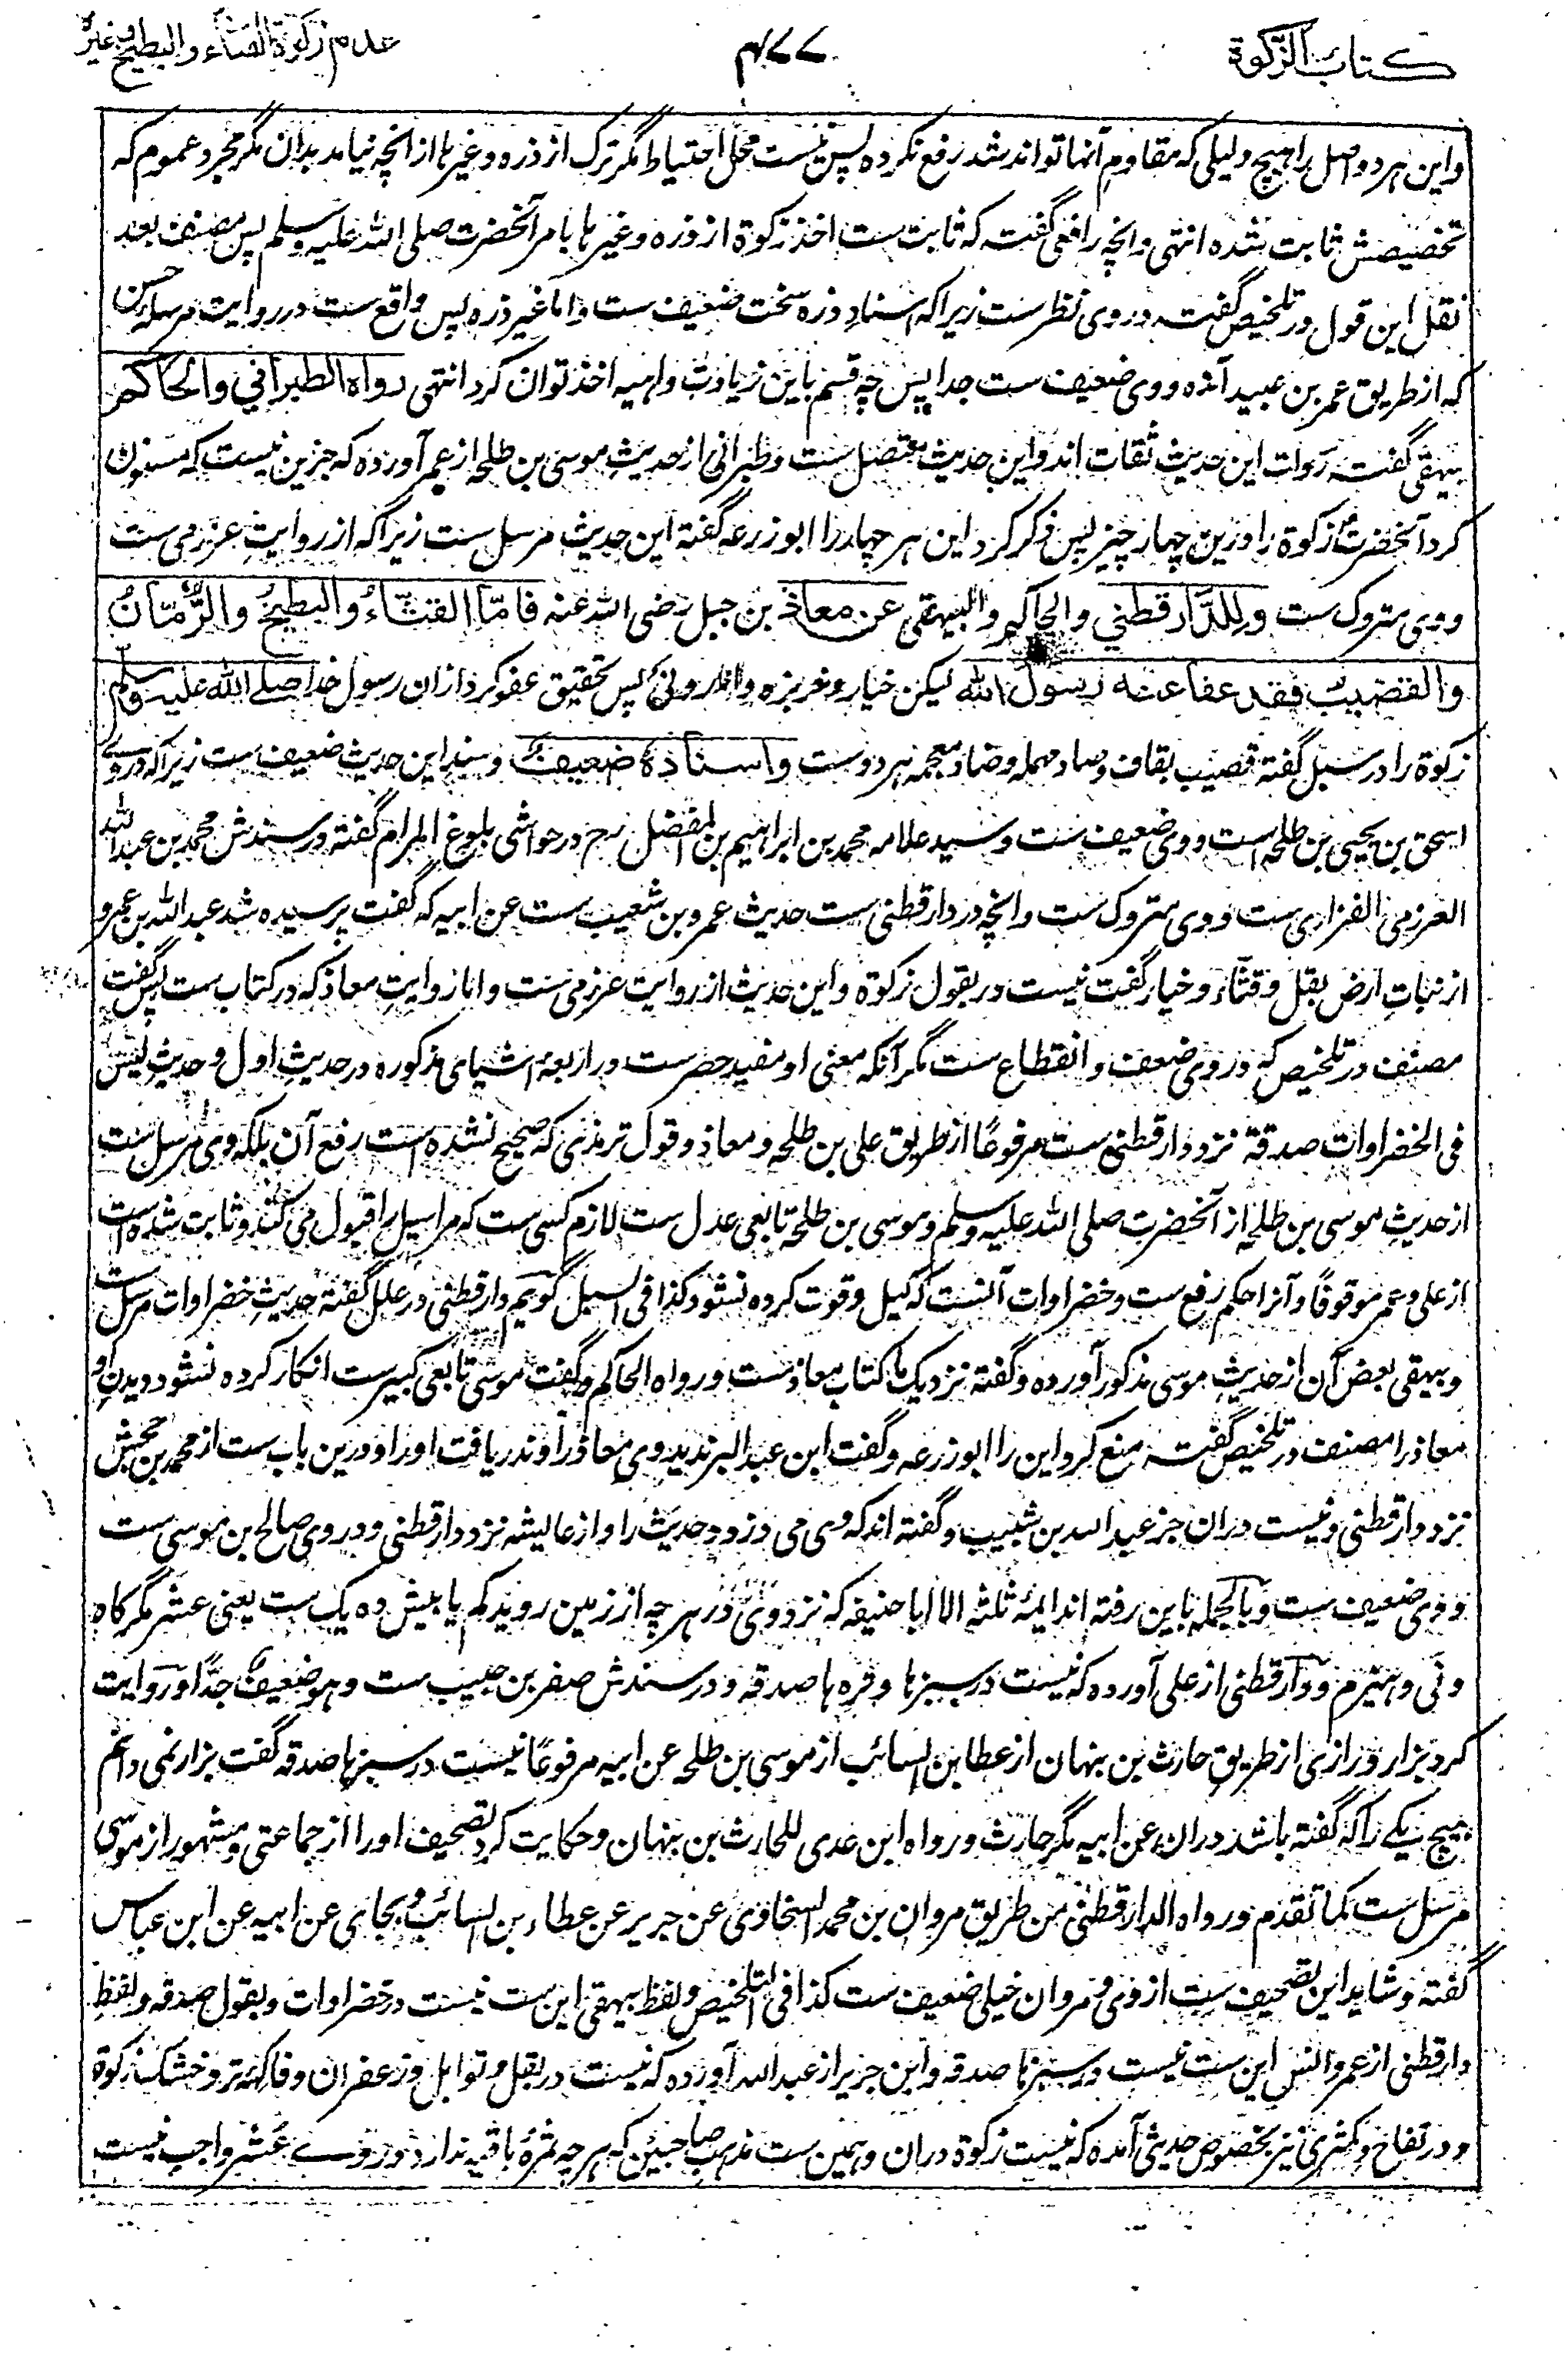 کتاب الزکوة
۴۷۷
عدم زکوة القثاء والبطیخ وغیره
واین هر دو اصل را هیچ دلیلی که مقاوم آنها تواند شد رفع نکرده پس نیست محل احتیاط مگر ترک از ذره وغیرها از انچه نیامد بدان مگر مجرد عموم که
تخصیصش ثابت شده انتهی وانچه رافعی گفت که ثابت ست اخذ زکوة از ذره وغیرها بامر آنحضرت صلی الله علیه وسلم پس مصنف بعد
نقل این قول در تلخیص گفته در وی نظرست زیراکه اسناد ذره سخت ضعیف ست واما غیر ذره پس واقع ست در روایت مرسله حسن
که از طریق عمر بن عبید آمده ووی ضعیف ست جدا پس چه قسم باین زیادت واهیه اخذ توان کرد انتهی رواه الطبراني والحاکم
بیهقی گفته روات این حدیث ثقات اند واین حدیث متصل ست وطبرانی از حدیث موسی بن طلحه از عمر آورده که جزین نیست که مسنون
کرد آنحضرت زکوة را درین چهار چیز پس ذکر کرد این هر چهار را ابو زرعه گفته این حدیث مرسل ست زیراکه از روایت عرزمی ست
ووی متروک ست وللدارقطني والحاکم والبیهقی عن معاذ بن جبل رضی الله عنه فامّا القثّاءُ والبطیخُ والرُّمّانُ
والقضبُ فقد عفا عنه رسول الله لیکن خیار وخربزه وانار ونی پس تحقیق عفو کرد ازان رسول خدا صلے الله علیه وسلم
زکوة را در سبل گفته قصیب بقاف وصاد مهمله وضاد معجمه هر دوست واسنادُهُ ضعیفٌ وسند این حدیث ضعیف ست زیراکه دروے
اسحق بن یحیی بن طلحه است ووی ضعیف ست وسید علامه محمد بن ابراهیم بن المفضل رح در حواشی بلوغ المرام گفته در سندش محمد بن عبدالله
العرزمی الفزاری ست ووی متروک ست وانچه در دارقطنی ست حدیث عمرو بن شعیب ست عن ابیه که گفت پرسیده شد عبدالله بن عمرو
از نبات ارض بقل وقثّاء وخیار گفت نیست در بقول زکوة واین حدیث از روایت عرزمی ست واما روایت معاذ که در کتاب ست پس گفت
مصنف در تلخیص که در وی ضعف وانقطاع ست مگر آنکه معنی او مفید حصرست در اربعه اشیای مذکوره در حدیث اول وحدیث لیس
فی الخضراوات صدقة نزد دارقطنی ست مرفوعًا از طریق علی بن طلحه ومعاذ وقول ترمذی که صحیح نشده است رفع آن بلکه وی مرسل ست
از حدیث موسی بن طلحه از آنحضرت صلی الله علیه وسلم وموسی بن طلحه تابعی عدل ست لازم کسی ست که مراسیل را قبول می کند وثابت شده است
از علی وعمر موقوفًا وآنرا حکم رفع ست وخضراوات آنست که کیل وقوت کرده نشود کذا فی السبل گویم دارقطنی در علل گفته حدیث خضراوات مرسل ست
وبیهقی بعض آن از حدیث موسی مذکور آورده وگفته نزدیک ما کتاب معاذ ست ورواه الحاکم وگفت موسی تابعی کبیرست انکار کرده نشود دیدن او
معاذ را مصنف در تلخیص گفته منع کرد این را ابو زرعه وگفت ابن عبدالبر ندید وی معاذ را وندریافت او را ودرین باب ست از محمد بن جحش
نزد دارقطنی ونیست دران جز عبدالله بن شبیب وگفته اند که وی می دزدد حدیث را واز عایشه نزد دارقطنی ودر وی صالح بن موسی ست
ووی ضعیف ست وبالجمله باین رفته اند ایمهٔ ثلثه الا ابا حنیفه که نزد وی در هر چه از زمین روید کم یا بیش ده یک ست یعنی عشر مگر کاه
ونی وهیزم ودارقطنی از علی آورده که نیست در سبزها وقره ها صدقه ودر سندش صقر بن حبیب ست وهو ضعیفٌ جدًّا وروایت
کرد بزار ورازی از طریق حارث بن نبهان از عطا بن السائب از موسی بن طلحه عن ابیه مرفوعًا نیست در سبزها صدقه گفت بزار نمی دانم
هیچ یکے را که گفته باشد دران عن ابیه مگر حارث ورواه ابن عدی للحارث بن نبهان وحکایت کرد تضعیف او را از جماعتی ومشهور از موسی
مرسل ست کما تقدم ورواه الدارقطنی من طریق مروان بن محمد السنجاوی عن جریر عن عطاء بن السائب وبجای عن ابیه عن ابن عباس
گفته وشاید این تصحیف ست از وی ومروان خیلی ضعیف ست کذا فی التلخیص ولفظ بیهقی این ست نیست در خضراوات وبقول صدقه ولفظ
دارقطنی از عمر وانس این ست نیست در سبزها صدقه وابن جریر از عبدالله آورده که نیست در بقل وتوابل وزعفران وفاکهٔ تر وخشک زکوة
ودر تفاح وکمثری نیز بخصوص حدیثی آمده که نیست زکوة دران وهمین ست مذهب صاحبین که هر چه ثمرهٔ باقیه ندارد دروے عشر واجب نیست